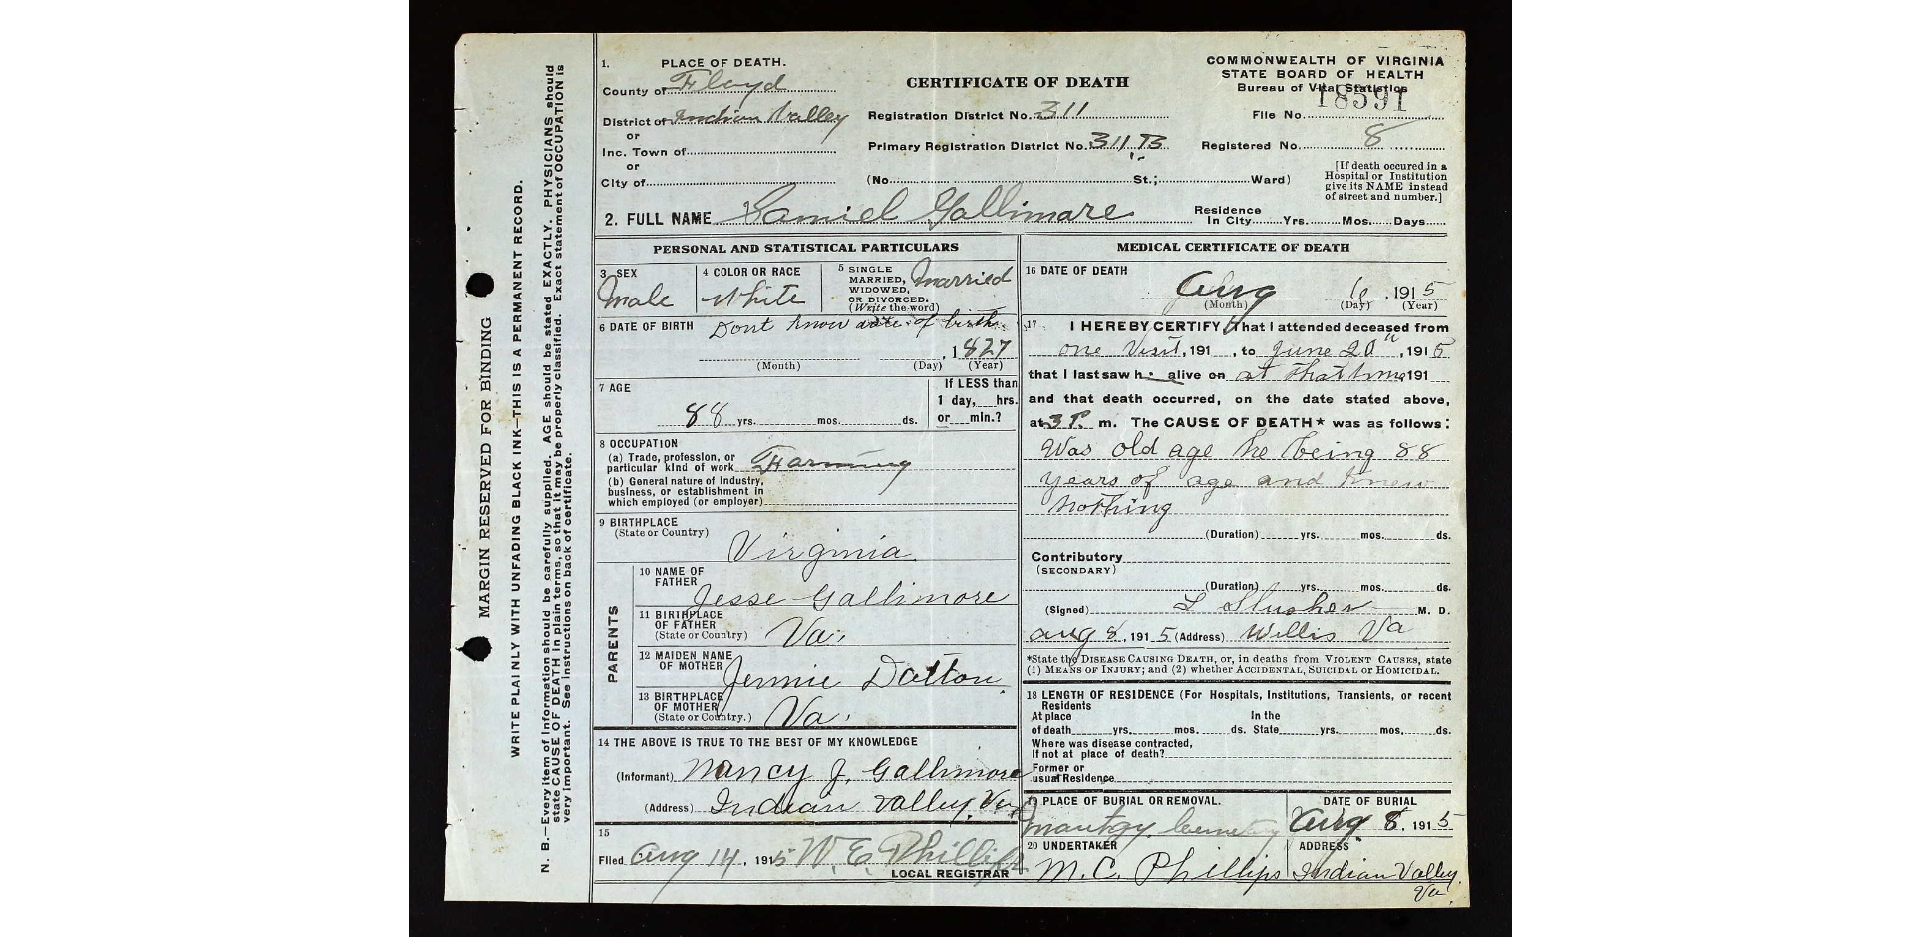 MARGIN RESERVED FOR BINDING
WRITE PLAINLY WITH UNFADING BLACK INK—THIS IS A PERMANENT RECORD.
N. B.—Every item of Information should be carefully supplied. AGE should be stated EXACTLY. PHYSICIANS should
state CAUSE OF DEATH in plain terms, so that it may be properly classified. Exact statement of OCCUPATION is
very important. See instructions on back of certificate.
1. PLACE OF DEATH.
County of Floyd
District of Indian Valley
or
Inc. Town of
or
City of
CERTIFICATE OF DEATH
Registration District No. 311
Primary Registration District No. 311 B
(No. St.; Ward)
COMMONWEALTH OF VIRGINIA
STATE BOARD OF HEALTH
Bureau of Vital Statistics
18591
File No.
Registered No. 8
[If death occured in a
Hospital or Institution
give its NAME instead
of street and number.]
2. FULL NAME Daniel Gallimore
Residence
In City Yrs. Mos. Days
PERSONAL AND STATISTICAL PARTICULARS
3 SEX
Male
4 COLOR OR RACE
White
5 SINGLE
MARRIED,
WIDOWED,
OR DIVORCED.
(Write the word)
Married
6 DATE OF BIRTH Dont know date of birth
, 1827
(Month) (Day) (Year)
7 AGE
88 yrs. mos. ds.
If LESS than
1 day, hrs.
or min.?
8 OCCUPATION
(a) Trade, profession, or
particular kind of work Farming
(b) General nature of Industry,
business, or establishment in
which employed (or employer)
9 BIRTHPLACE
(State or Country)
Virginia
PARENTS
10 NAME OF
FATHER
Jesse Gallimore
11 BIRTHPLACE
OF FATHER
(State or Country) Va.
12 MAIDEN NAME
OF MOTHER
Jennie Dalton
13 BIRTHPLACE
OF MOTHER
(State or Country.) Va.
14 THE ABOVE IS TRUE TO THE BEST OF MY KNOWLEDGE
(Informant) Nancy J. Gallimore
(Address) Indian Valley, Va
15
Filed Aug 14, 1915 W. E. Phillips
LOCAL REGISTRAR
MEDICAL CERTIFICATE OF DEATH
16 DATE OF DEATH
Aug 6, 1915
(Month) (Day) (Year)
17 I HEREBY CERTIFY, that I attended deceased from
one Visit, 191 , to June 20", 1915
that I last saw h alive on at that time 191
and that death occurred, on the date stated above,
at 3 P. m. The CAUSE OF DEATH* was as follows:
Was old age he being 88
years of age and knew
nothing
(Duration) yrs. mos. ds.
Contributory
(SECONDARY)
(Duration) yrs. mos. ds.
(Signed) L Slusher M. D.
Aug 8, 1915 (Address) Willis Va
*State the DISEASE CAUSING DEATH, or, in deaths from VIOLENT CAUSES, state
(1) MEANS OF INJURY; and (2) whether ACCIDENTAL, SUICIDAL or HOMICIDAL.
18 LENGTH OF RESIDENCE (For Hospitals, Institutions, Transients, or recent
Residents
At place In the
of death yrs. mos. ds. State yrs. mos. ds.
Where was disease contracted,
If not at place of death?
Former or
usual Residence
19 PLACE OF BURIAL OR REMOVAL.
Cemetery
DATE OF BURIAL
Aug 8, 1915
20 UNDERTAKER
M. C. Phillips
ADDRESS
Indian Valley
Va